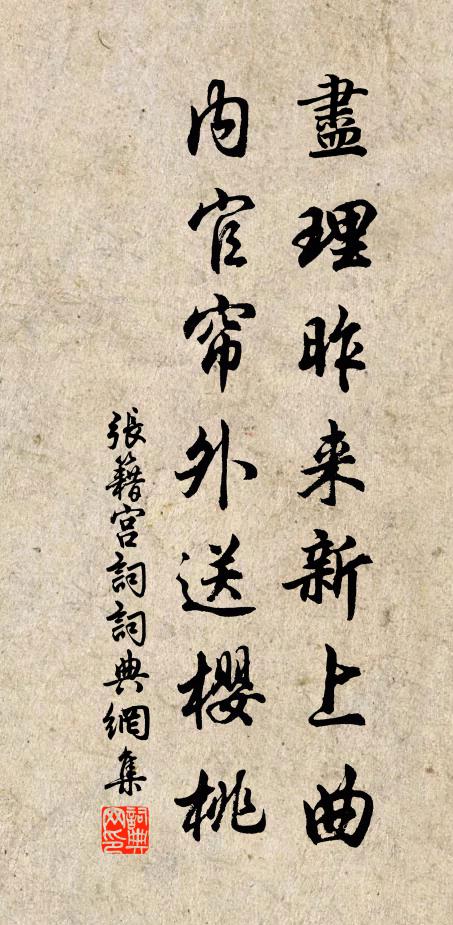 盡理昨来新上曲
内官帘外送櫻桃
張籍宮詞詞典網集
詞典网印